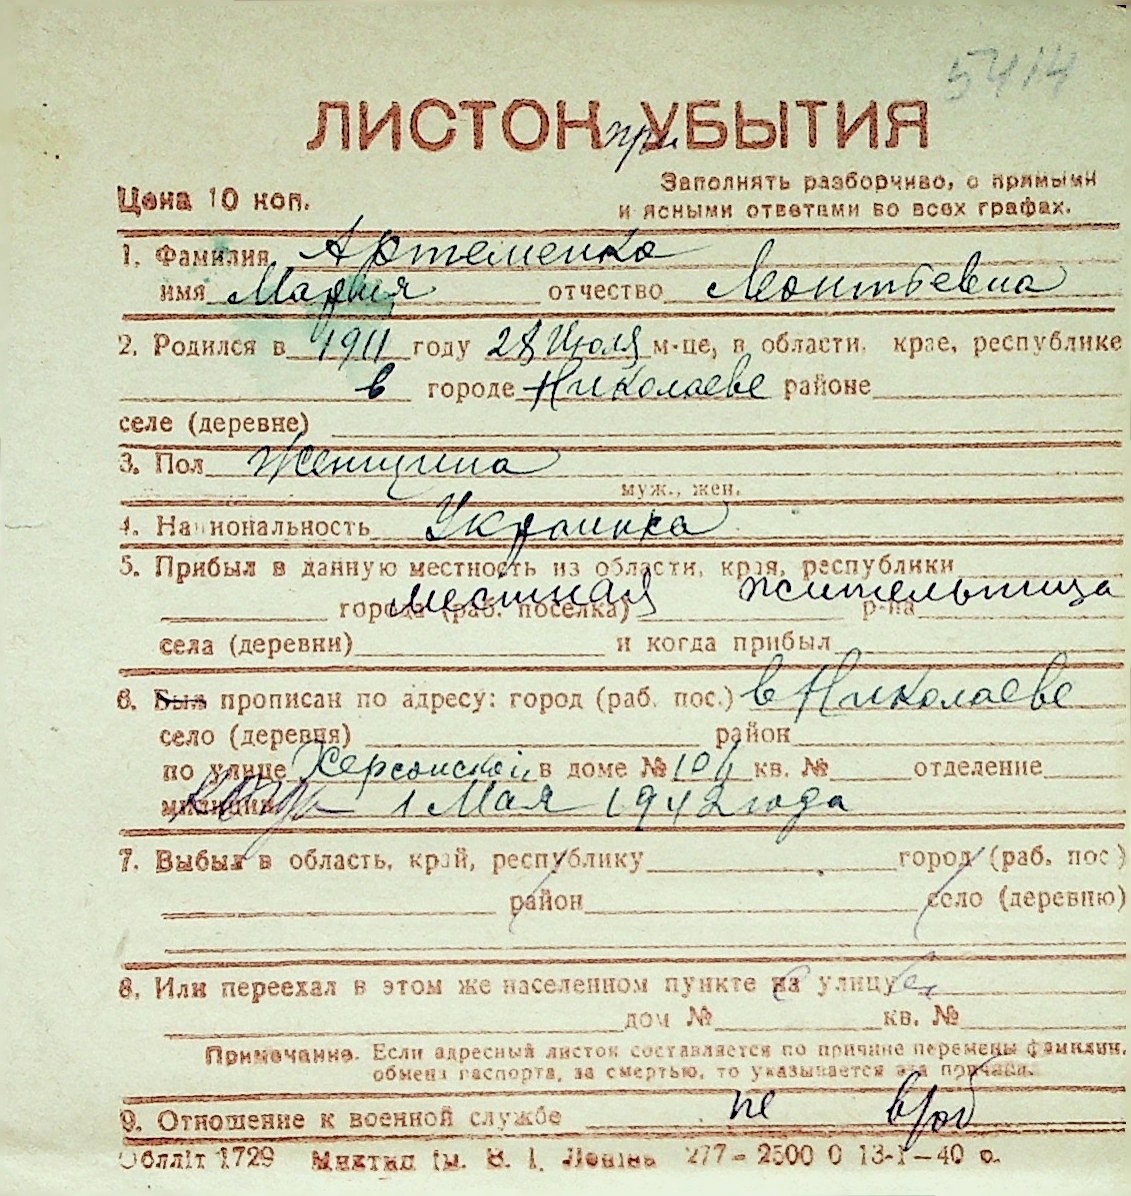 5414
ЛИСТОК при УБЫТИЯ
Заполнять разборчиво, с прямыми
Цена 10 коп.
и ясными ответами во всех графах.
1. Фамилия Артеменко
имя Мария отчество Леонтьевна
2. Родился в 1911 году 28 Июля м-це, в области, крае, республике
в городе Николаеве районе
селе (деревне)
3. Пол Женщина
муж., жен.
4. Национальность Украинка
5. Прибыл в данную местность из области, края, республики
местная жительница
города (раб. поселка) р-на
села (деревни) и когда прибыл
6. Был прописан по адресу: город (раб. пос.) в Николаеве
село (деревня) район
по улице Херсонской в доме № 104 кв. № отделение
милиции когда 1 Мая 1942 года
7. Выбыл в область, край, республику город (раб. пос)
район село (деревню)
8. Или переехал в этом же населенном пункте на улицу
дом № кв. №
Примечание. Если адресный листок составляется по причине перемены фамилии,
обмена паспорта, за смертью, то указывается эта причина.
9. Отношение к военной службе не
Обллiт 1729 iм. В. I. Ленiна 277-2500 0 13-I-40 р.